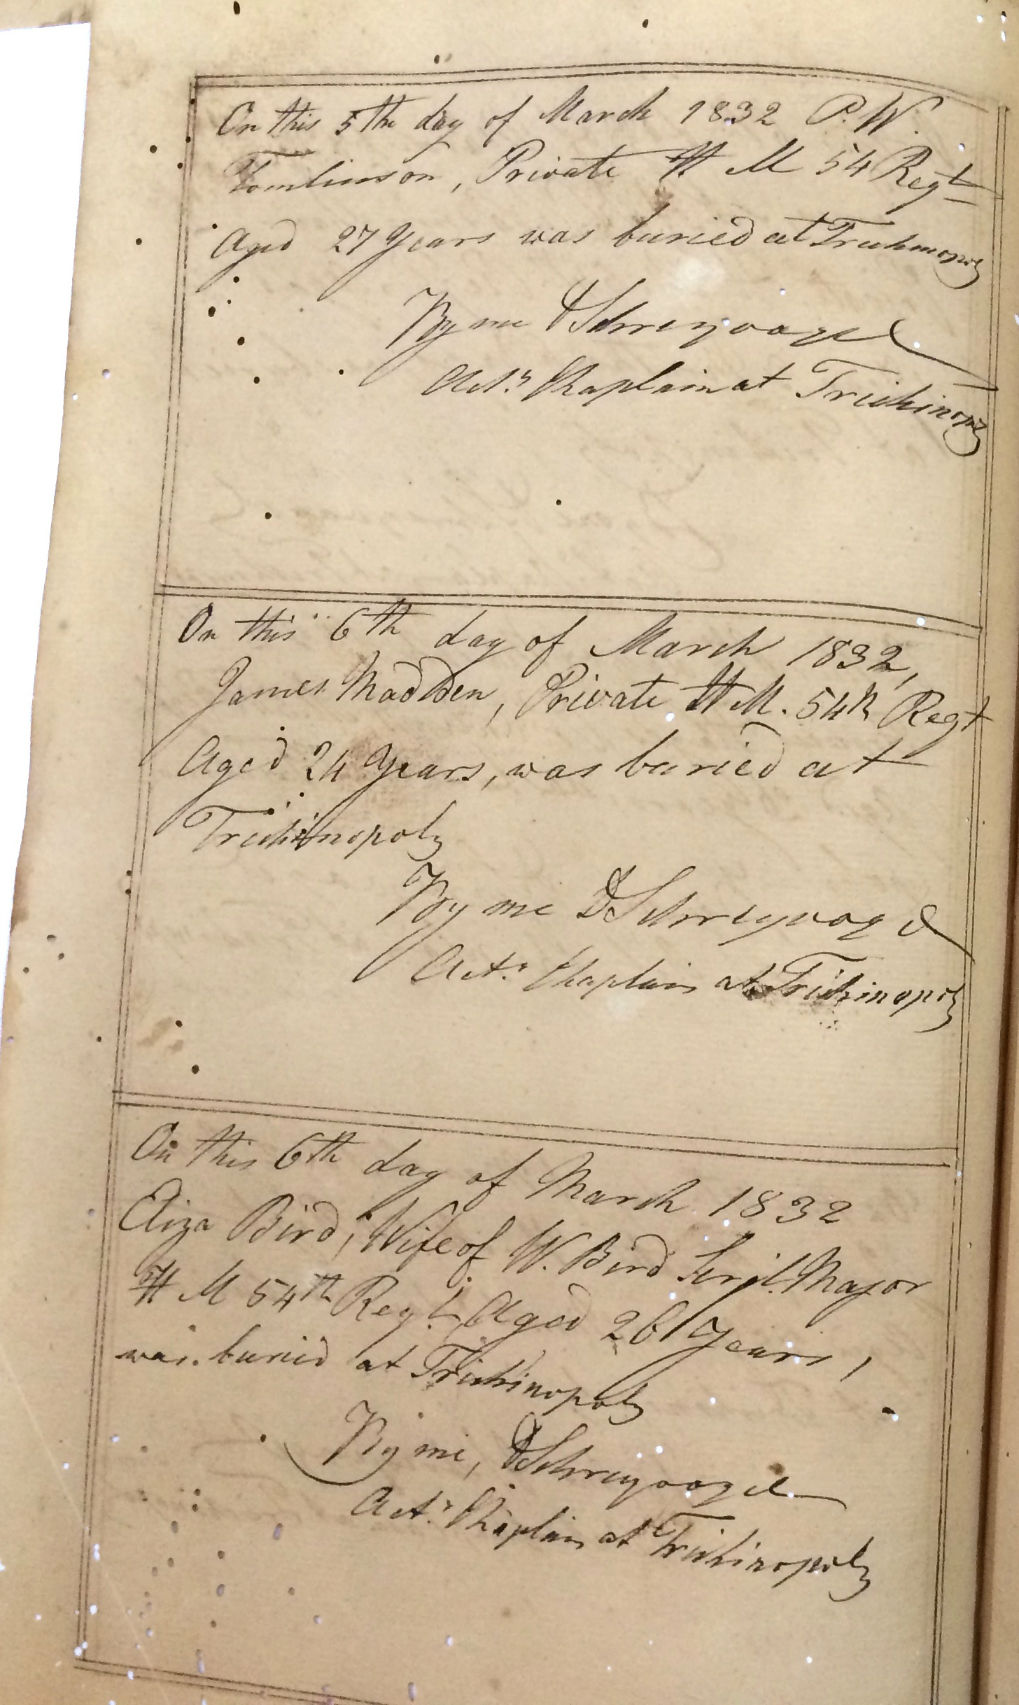 On this 5th day of March 1832 P. W.
Tomlinson, Private H M 54 Regt
Aged 27 Years was buried at Trichinopoly
By me D Schreyvogel
Actg Chaplain at Trichinopoly
On this 6th day of March 1832,
James Madden, Private H M. 54th Regt
Aged 24 Years, was buried at
Trichinopoly
By me D Schreyvogel
Actg Chaplain at Trichinopoly
On this 6th day of March 1832
Eliza Bird, Wife of W. Bird Serjt. Major
H M 54th Regt. Aged 26 Years,
was buried at Trichinopoly
By me, D Schreyvogel
Actg Chaplain at Trichinopoly